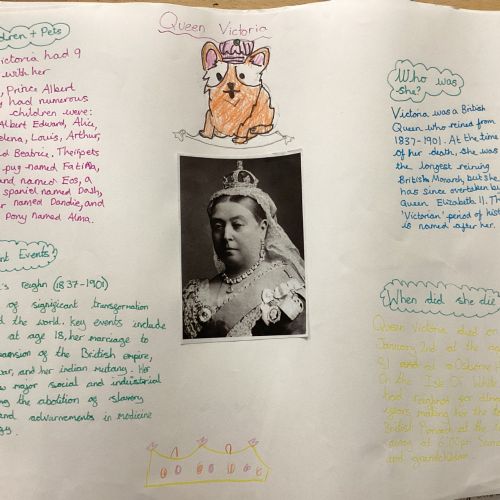 Queen Victoria
ldren + Pets
ictoria had 9
with her
, Prince Albert
y had numerous
children were:
Albert Edward, Alice,
elena, Louis, Arthur,
d Beatrice. Their pets
pug named Fatima,
und named Eos, a
spaniel named Dash,
r named Dandie, and
Pony named Alma.
nt Events?
's Reighn (1837-1901)
of significant transformation
d the world. Key events include
at age 18, her marriage to
pansion of the British empire,
war, and her indian mutany. Her
w major social and industrial
ng the abolition of slavery
and advurnements in medicine
gy.
Who was
she?
Victoria was a British
Queen who reined from
1837-1901. At the time
of her death, she was
the longest reining
British Monarch, but she
has since overtaken by
Queen Elizabeth II. Th
'Victorian' period of his
is named after her.
When did she die
Queen Victoria died on
January 2nd at the ag
81 and at a Osborne H
On the Isle Of White
had reighned for
years, making her the
British Monarch at the
away at 6:30pm
and grandchildren.